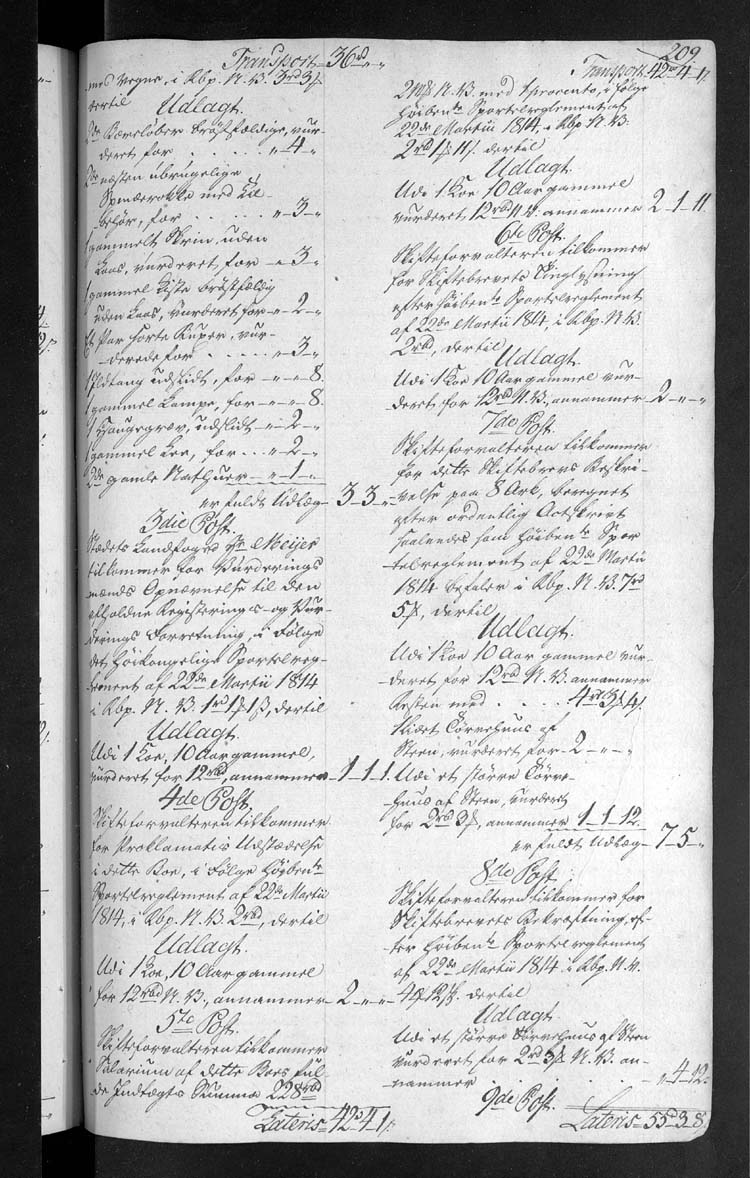 209
Transport 36 rd „ „
med Vegne, i Rbp. N.V. 3rd 3ß
dertil Udlagt.
2de Bæresløber brøstfældige, vur-
deret for . . . . „ 4 „
2de næsten ubrugelige
Spinderokke med til-
behør, for . . . . „ 3 „
1 gammelt Skrin, uden
Laas, vurderet, for „ 3 „
1 gammel Kiste brøstfældig
uden Laas, vurderet for „ 2 „
Et Par sorte Kuper, vur-
derede for . . . . . „ 3 „
1 Ildtang udslidt, for „ „ 8.
1 gammel Lampe, for „ „ 8.
1 Haugegrev, udslidt „ 2 „
1 gammel Lee, for . . „ 2 „
2de gamle „ 1 „
er fuldt Udlæg 3 3 „
3die Post.
Stædets Landfoged Hr. Meijer
tilkommer for Vurderings
mænds Opnævnelse til den
afholdne Registerings- og Vur-
derings Forretning, i Følge
det Høikongelige Sportelreg-
lement af 22de Martii 1814
i Rbp. N. V. 1rd 1ß 1ß, dertil
Udlagt.
Udi 1 Koe, 10 Aar gammel,
vurderet for 12rbd, annammer 1 1 1.
4de Post.
Skifteforvalteren tilkommer
for Proklamatis Udstædelse
i dette Boe, i Følge Høiben.te
Sportelreglement af 22de Martii
1814, i Rbp. N. V. 2rbd, dertil
Udlagt.
Udi 1 Koe, 10 Aar gammel
for 12rbd N. V., annammer 2 „ „
5te Post.
Skifteforvalteren tilkommer
Salarium af dette Boes ful-
de Indtægts Summa 228rbd
Lateris 42rd 4 1ß.
Transport 42rd 4 1.
N. V. med 1 procento, i følge
Høiben.te Sportelreglement af
22de Martii 1814, i Rbp. N. V.
2rbd 1ß 11ß. dertil
Udlagt.
Udi 1 Koe 10 Aar gammel
vurderet 12rbd N.V. annammer 2 1 11
6te Post.
Skifteforvalteren tilkommer
for Skiftebrevets Tinglysning
efter Høiben.te Sportelreglement
af 22de Martii 1814, i Rbp. N. V.
2rbd, dertil
Udlagt.
Udi 1 Koe 10 Aar gammel vur-
deret for 12rbd N. V. annammer 2 „ „
7de Post.
Skifteforvalteren tilkommer
for dette Skiftebrevs Beskri-
velse paa 8 Ark, beregnet
efter ordentlig Actskrivt
saaledes som Høiben.te Spor
telreglement af 22de Martii
1814 befaler i Rbp. N. V. 7rd
5ß, dertil
Udlagt.
Udi 1 Koe 10 Aar gammel vur-
deret for 12rbd N. V. annammer
Resten med . . . . 4rd 3ß 4ß.
1 lidet Tørvehuus af
Steen, vurderet for 2 „ „
Udi et større Tørve-
huus af Steen, vurderet
for 2rbd 3ß, annammer 1 1 12.
er fuldt Udlæg 7 5 „
8de Post.
Skifteforvalteren tilkommer for
Skiftebrevets Bekræftning, ef-
ter Høiben.te Sportelreglement
af 22de Martii 1814 i Rbp. N. V.
4ß 12ß. dertil
Udlagt.
Udi et større Tørvehuus af Steen
vurderet for 2rd 3ß N. V. an-
nammer . . . . . . „ 4 12.
9de Post.
Lateris 55rd 3 8ß